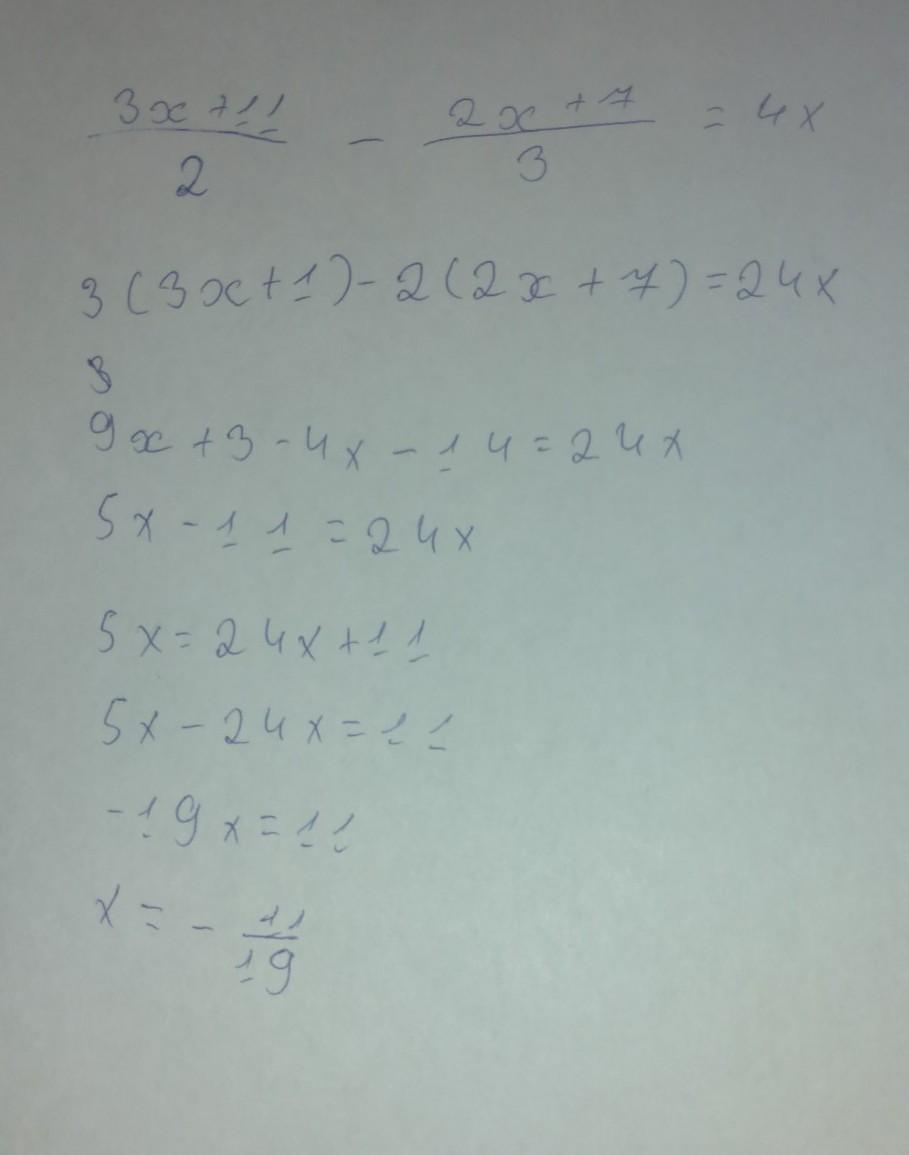 (3x+11)/2 - (2x+7)/3 = 4x
3(3x+1)-2(2x+7)=24x
8
9x+3-4x-14=24x
5x-11=24x
5x=24x+11
5x-24x=11
-19x=11
x=-11/19